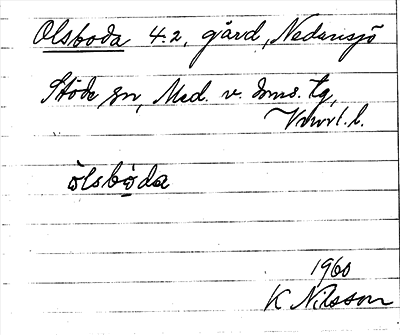 Olsboda 4:2, gård, Nedansjö
Stöde sn, Med. v. doms. tg,
Vrnrl. l.
ölsbo̲da
1960
K Nilsson